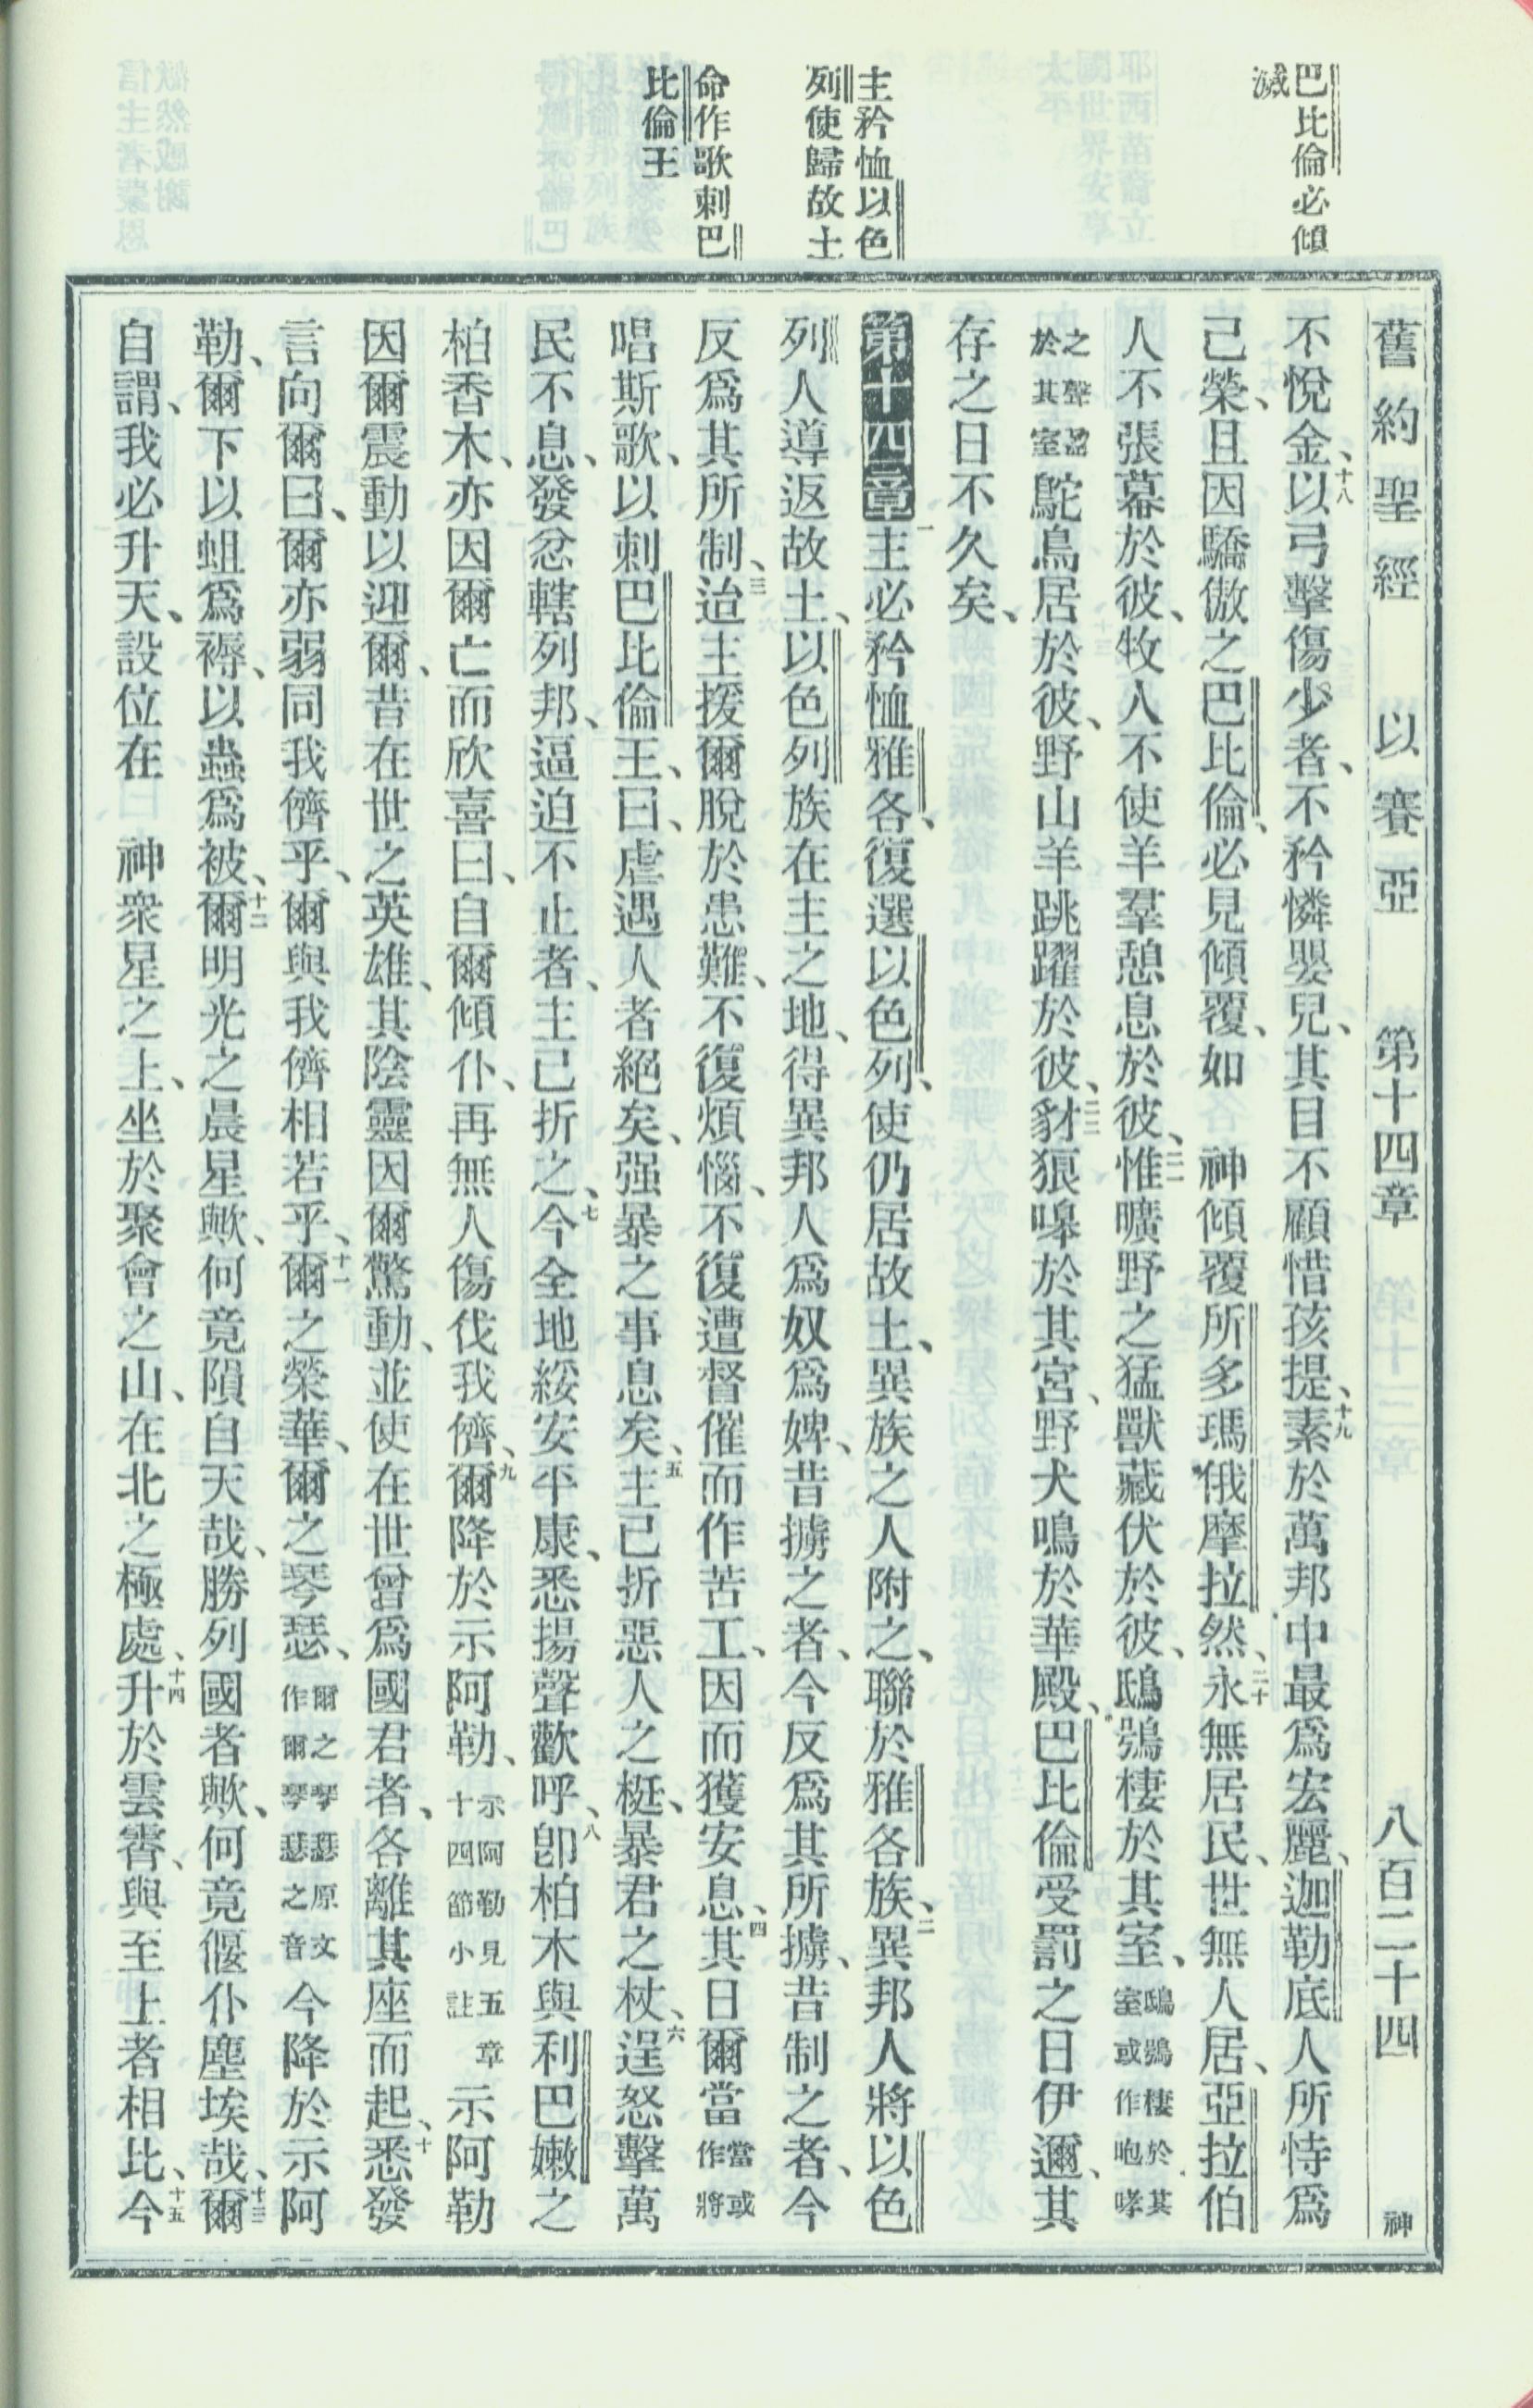 巴比倫必傾
滅
主矜恤以色
列使歸故土
命作歌刺巴
比倫王
舊約聖經 以賽亞 第十四章 八百二十四 神
不悅金、十八以弓擊傷少者、不矜憐嬰兒、其目不顧惜孩提、十九素於萬邦中最爲宏麗、迦勒底人所恃爲
己榮、且因驕傲之巴比倫、必見傾覆、如 神傾覆所多瑪俄摩拉然、二十永無居民、世無人居、亞拉伯
人不張幕於彼、牧人不使羊羣憩息於彼、二一惟曠野之猛獸藏伏於彼、鴟鴞棲於其室、鴟鴞棲於其室或作咆哮
之聲盈於其室鴕鳥居於彼、野山羊跳躍於彼、二二豺狼嘷於其宮、野犬鳴於華殿、巴比倫受罰之日伊邇、其
存之日不久矣、
第十四章一主必矜恤雅各、復選以色列、使仍居故土、異族之人附之、聯於雅各族、二異邦人將以色
列人導返故土、以色列族在主之地、得異邦人爲奴爲婢、昔擄之者、今反爲其所擄、昔制之者、今
反爲其所制、三迨主援爾脫於患難、不復煩惱、不復遭督催而作苦工、因而獲安息、四其日爾當當或作將
唱斯歌、以刺巴比倫王、曰、虐遇人者絕矣、强暴之事息矣、五主已折惡人之梃、暴君之杖、六逞怒擊萬
民不息、發忿轄列邦、逼迫不止者、主已折之、七今全地綏安平康、悉揚聲歡呼、八卽柏木與利巴嫩之
柏香木、亦因爾亡而欣喜曰、自爾傾仆、再無人傷伐我儕、九爾降於示阿勒、示阿勒見五章十四節小註示阿勒
因爾震動以迎爾、昔在世之英雄、其陰靈因爾驚動、並使在世曾爲國君者、各離其座而起、十悉發
言向爾曰、爾亦弱同我儕乎、爾與我儕相若乎、十一爾之榮華、爾之琴瑟、爾之琴瑟原文作爾琴瑟之音今降於示阿
勒、爾下以蛆爲褥、以蟲爲被、十二爾明光之晨星歟、何竟隕自天哉、勝列國者歟、何竟偃仆塵埃哉、十三爾
自謂、我必升天、設位在 神衆星之上、坐於聚會之山、在北之極處、十四升於雲霄、與至上者相比、十五今